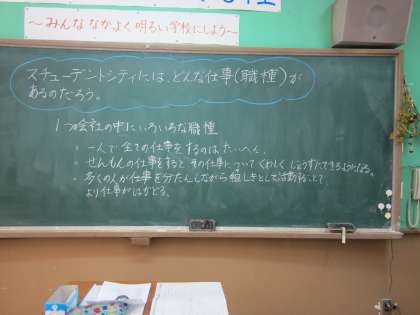 ～みんななかよく明るい学校にしよう～
スチューデントシティには、どんな仕事(職種)が
あるのだろう。
1つの会社の中にいろいろな職種
。一人で全ての仕事をするのは、たいへん。
。せんもんの仕事をすると その仕事について くわしく じょうずにできるようになる。
。多くの人が仕事を分たんしながら 組しきとして活動することで
より仕事がはかどる。